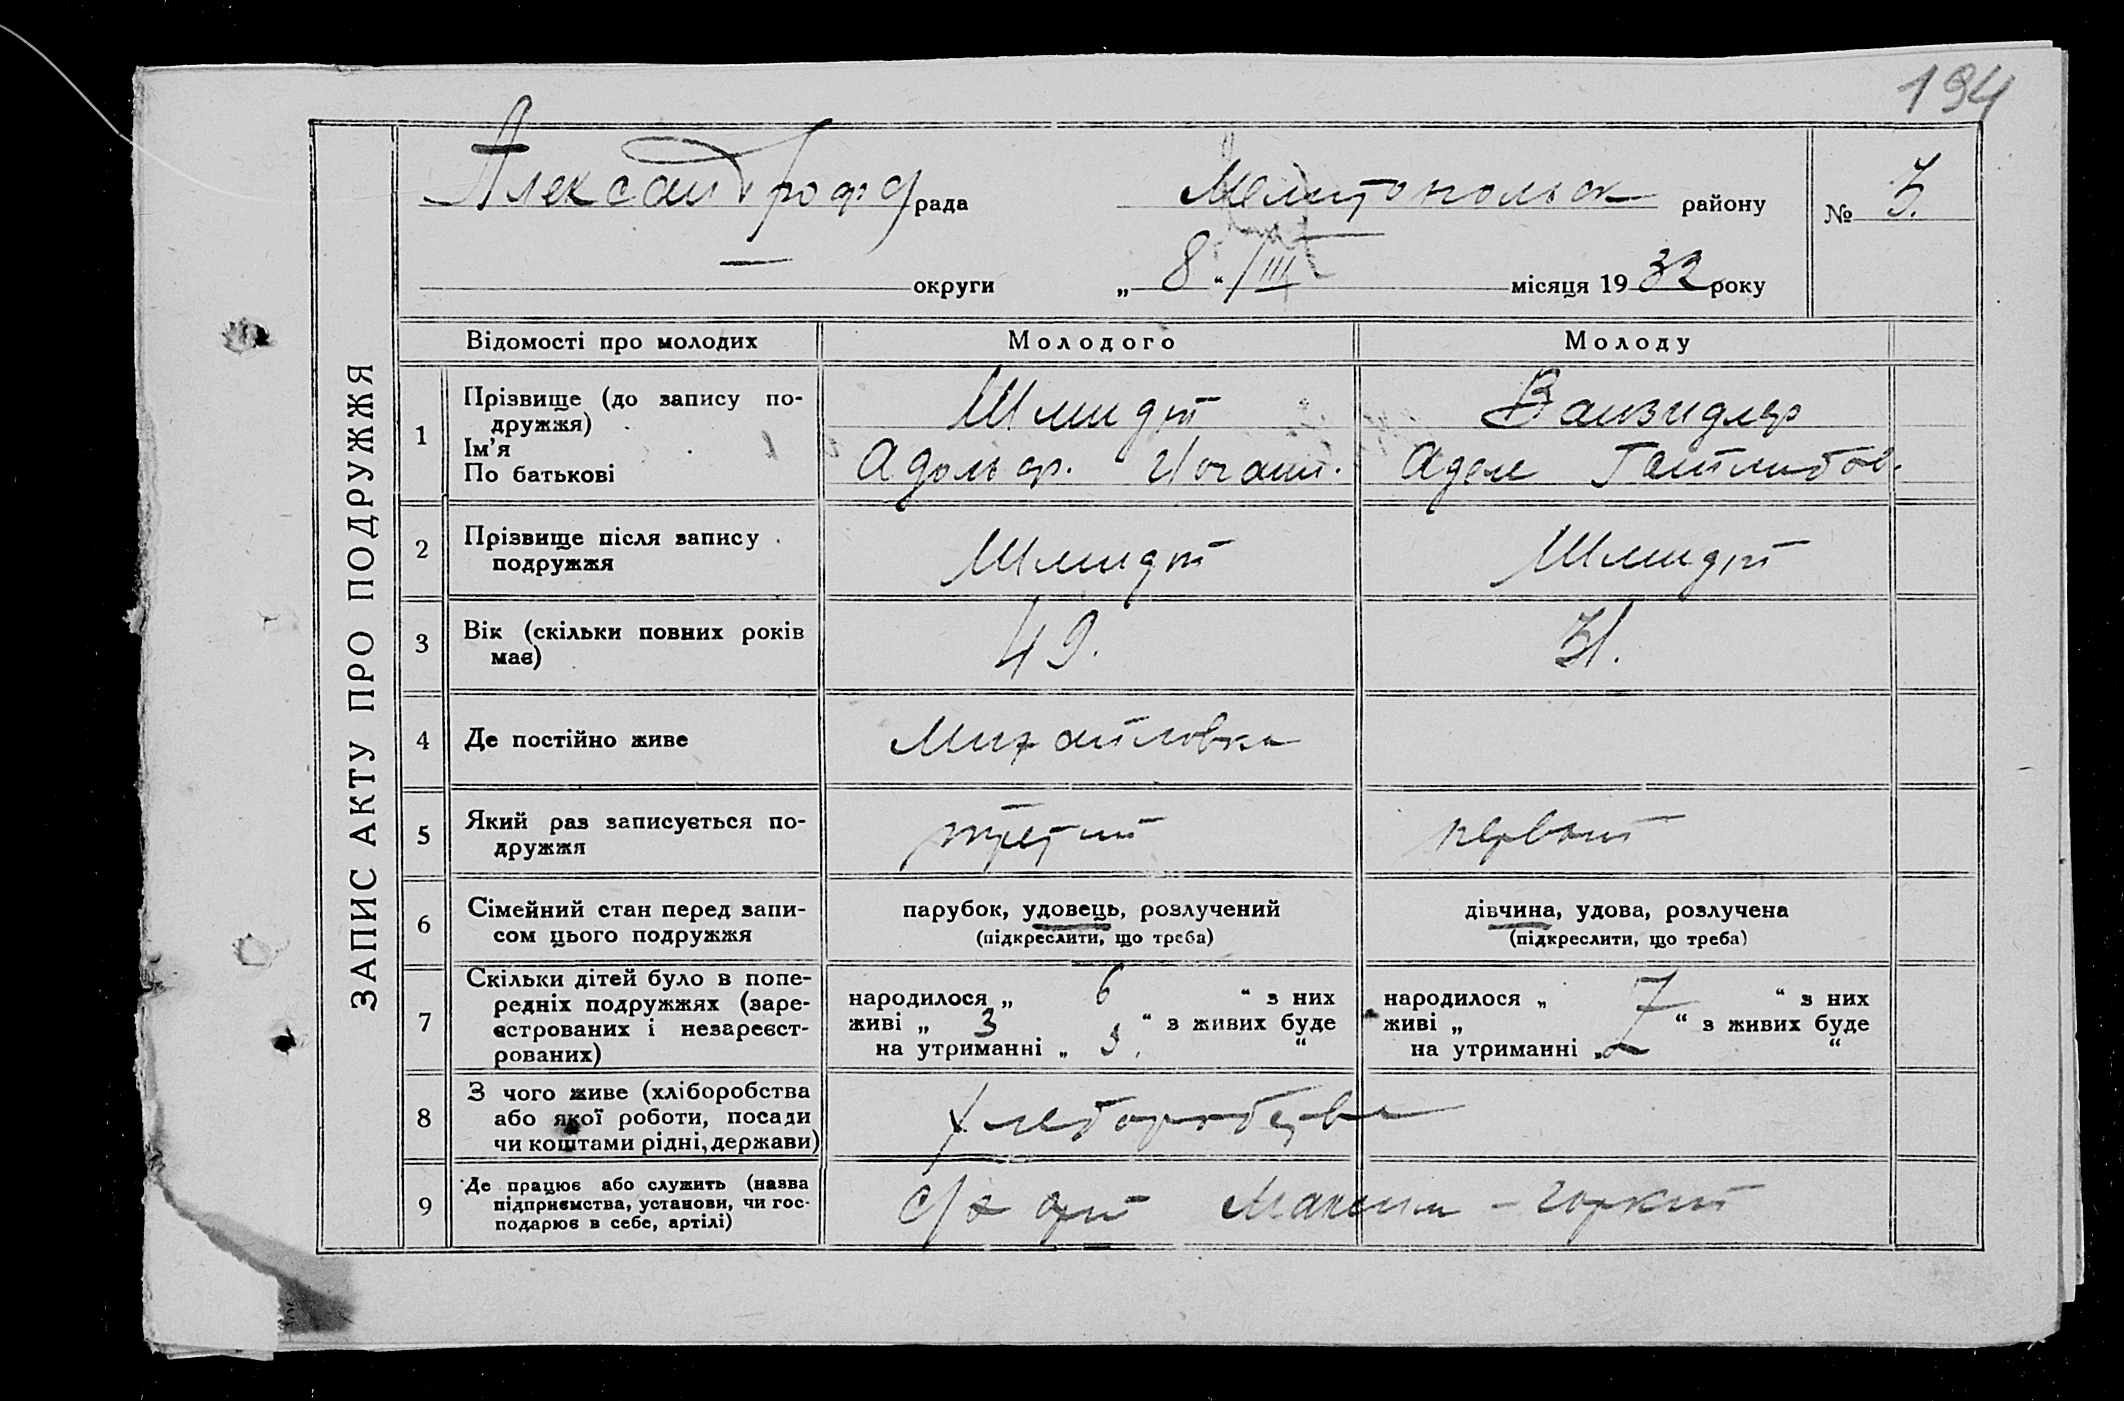 194
Александрофф рада Мелитопольск району № 3.
— округи „ 8 “ / III місяця 19 32 року
ЗАПИС АКТУ ПРО ПОДРУЖЖЯ
Відомості про молодих Молодого Молоду
1 Прізвище (до запису по-
дружжя)
Ім'я
По батькові
Шмидт
Адольф. Иоган.
Ванзидлер
Адоле Готлибов.
2 Прізвище після запису
подружжя
Шмидт Шмидт
3 Вік (скільки повних років
має)
49. 31.
4 Де постійно живе Михайловка
5 Який раз записується по-
дружжя
третий первый
6 Сімейний стан перед запи-
сом цього подружжя
парубок, удовець, розлучений
(підкреслити, що треба)
дівчина, удова, розлучена
(підкреслити, що треба)
7 Скільки дітей було в попе-
редніх подружжях (заре-
єстрованих і незареєст-
рованих)
народилося „ 6 “ з них
живі „ 3 “ з живих буде
на утриманні „ 3. “
народилося „ “ з них
живі „ “ з живих буде
на утриманні „ “
8 З чого живе (хліборобства
або якої роботи, посади
чи коштами рідні, держави)
хлеборобство
9 Де працює або служить (назва
підприємства, установи, чи гос-
подарює в себе, артілі)
с/х арт Максим - Горкий